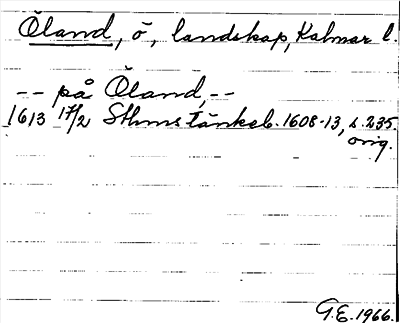 Öland, ö, landskap, Kalmar l.
-- på Öland, --
1613 17/2 Sthms tänkeb. 1608-13, s. 235.
orig.
G.E. 1966.